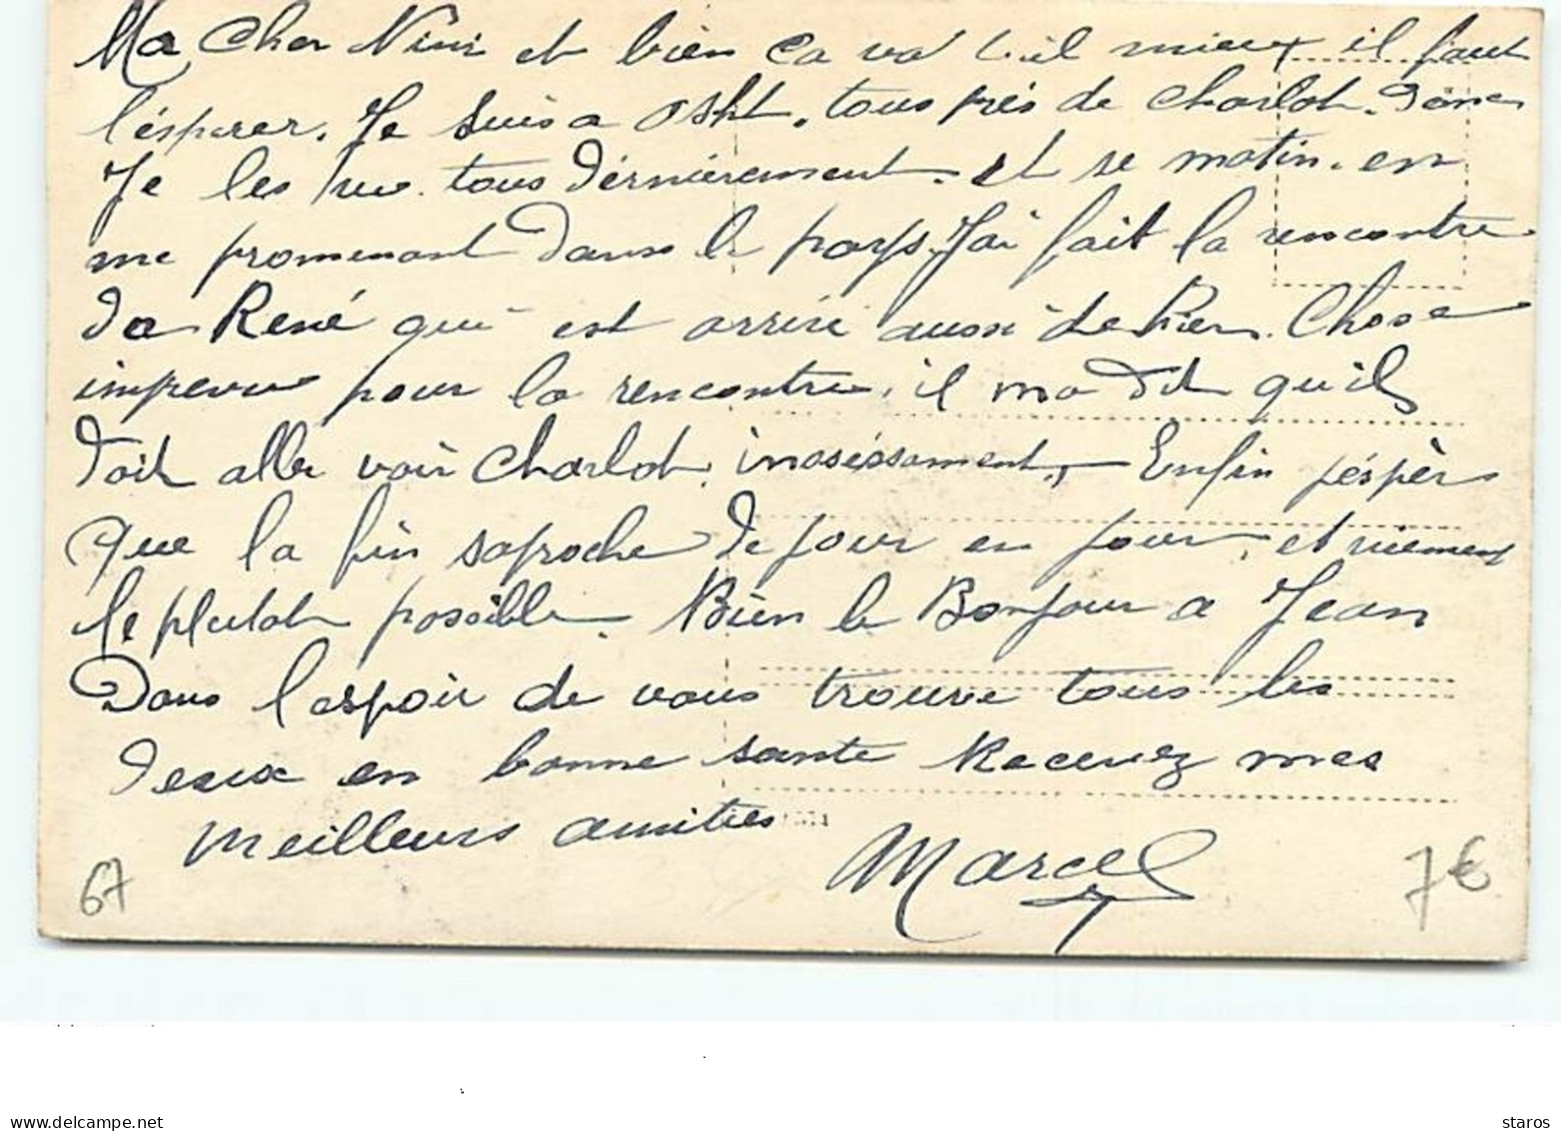 Ma Cher Nini et bien Ca va t-il mieux il faut
l'ésperer. Je suis a Osht. tous près de Charlot. Donc
Je les vu tous dérnièrement. et se matin. en
me promenant dans le pays. J'ai fait la rencontre
da René qui est arrivé aussi de hier. Chose
imprevue pour la rencontre. il ma dit qu'il
doit aller voir Charlot. inséssament, Enfin j'éspère
que la fin saproche de jour en jour, et viement
le plutot possible. Bien le Bonjour a Jean
Dans l'espoir de vous trouve tous les
deux en bonne sante Recevez mes
meilleurs amitiés
Marcel
67
7€
www.delcampe.net
staros